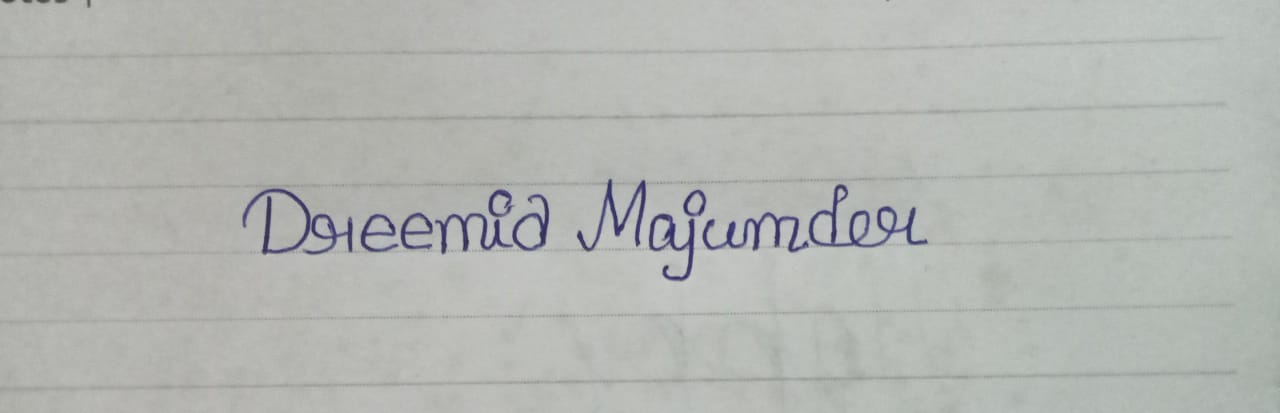 Dreemid Majumder